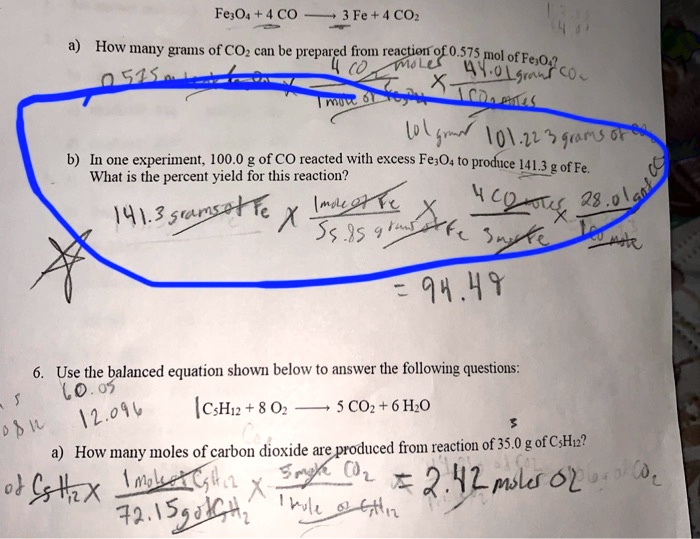 Fe₃O₄ + 4 CO ⟶ 3 Fe + 4 CO₂
a) How many grams of CO₂ can be prepared from reaction of 0.575 mol of Fe₃O₄?
4 CO₂ moles 44.01 grams CO₂
0.575 × ×
1 mole of 1 CO₂ moles
101.223 grams of
b) In one experiment, 100.0 g of CO reacted with excess Fe₃O₄ to produce 141.3 g of Fe.
What is the percent yield for this reaction?
141.3 grams of Fe × 1 mole of Fe × 4 CO moles × 28.01
55.85 grams of Fe 3 mole Fe 1 CO mole
= 94.49
6. Use the balanced equation shown below to answer the following questions:
60.05
12.096 C₅H₁₂ + 8 O₂ ⟶ 5 CO₂ + 6 H₂O
a) How many moles of carbon dioxide are produced from reaction of 35.0 g of C₅H₁₂?
of C₅H₁₂ × 1 mole of C₅H₁₂ × 5 mole CO₂ = 2.42 moles of CO₂
72.15 g of 1 mole of C₅H₁₂